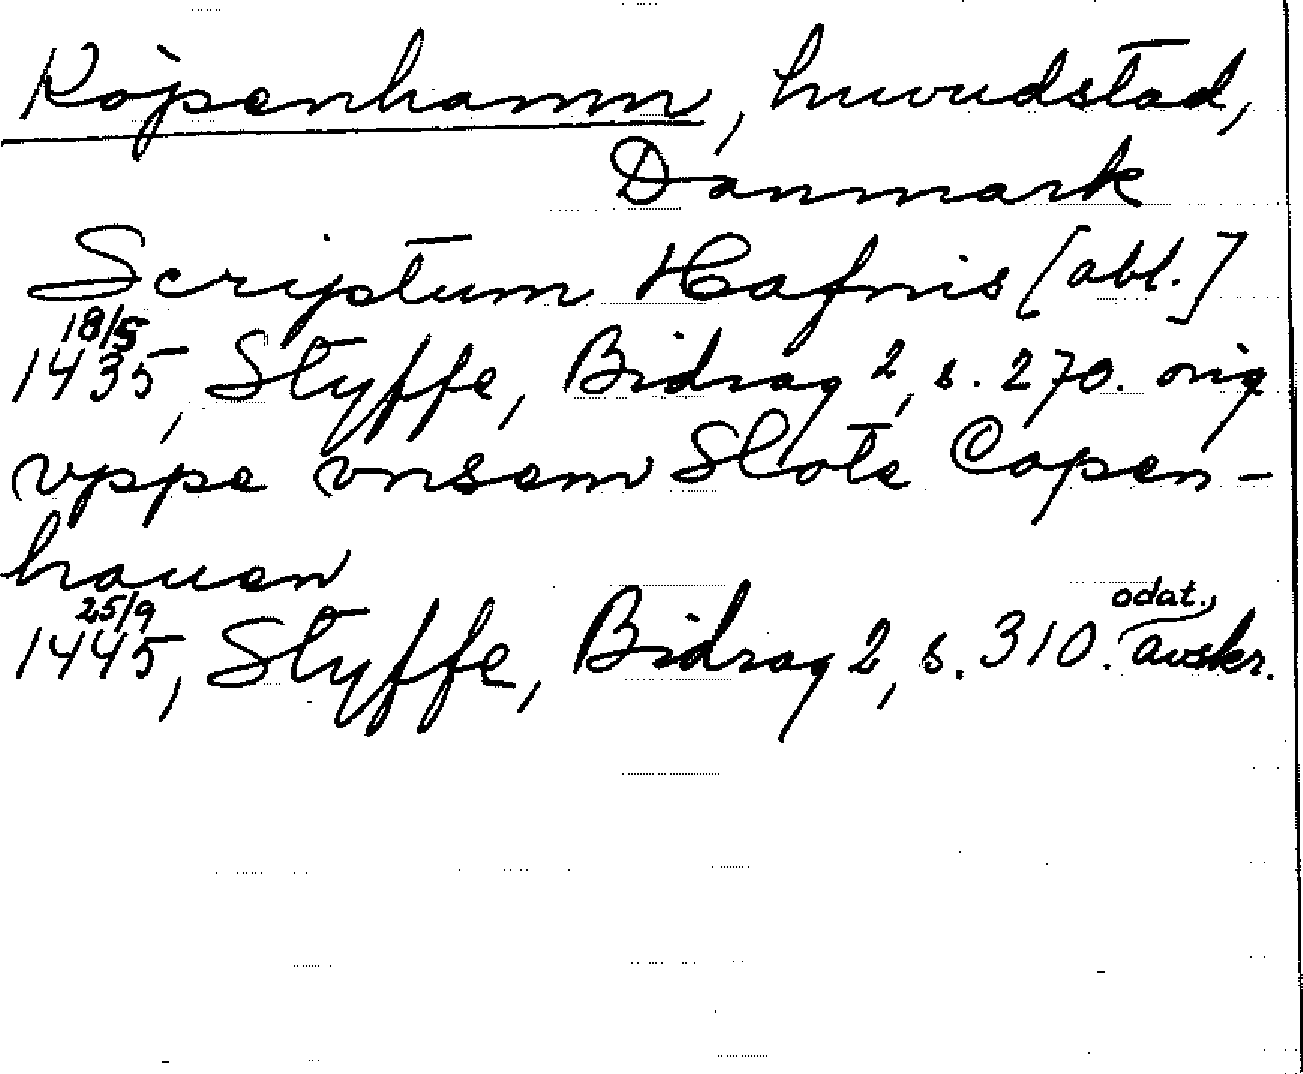 Köpenhamn, huvudstad,
Danmark
Scriptum Hafnis [abl.]
18/5
1435, Styffe, Bidrag 2, s. 270. orig
vppe vnsem Slote Copen-
hauen
25/9 odat.,
1445, Styffe, Bidrag 2, s. 310. avskr.